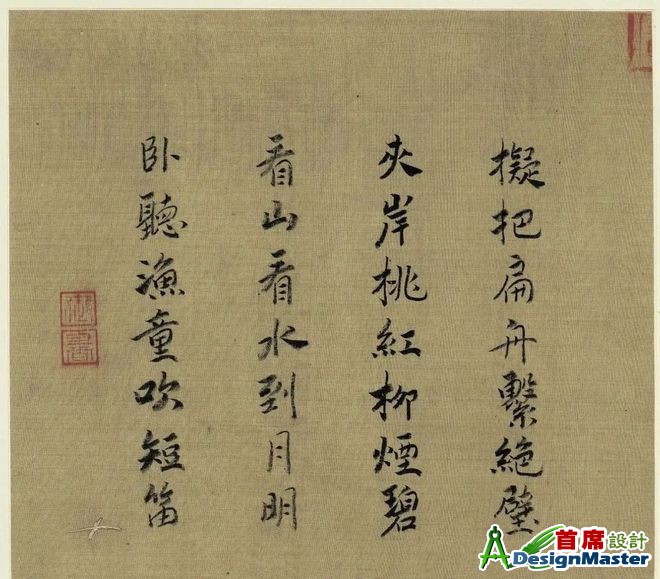 擬把扁舟繫絕壁
夾岸桃紅柳煙碧
看山看水到月明
卧聽漁童吹短笛
御書
首席設計
DesignMaster